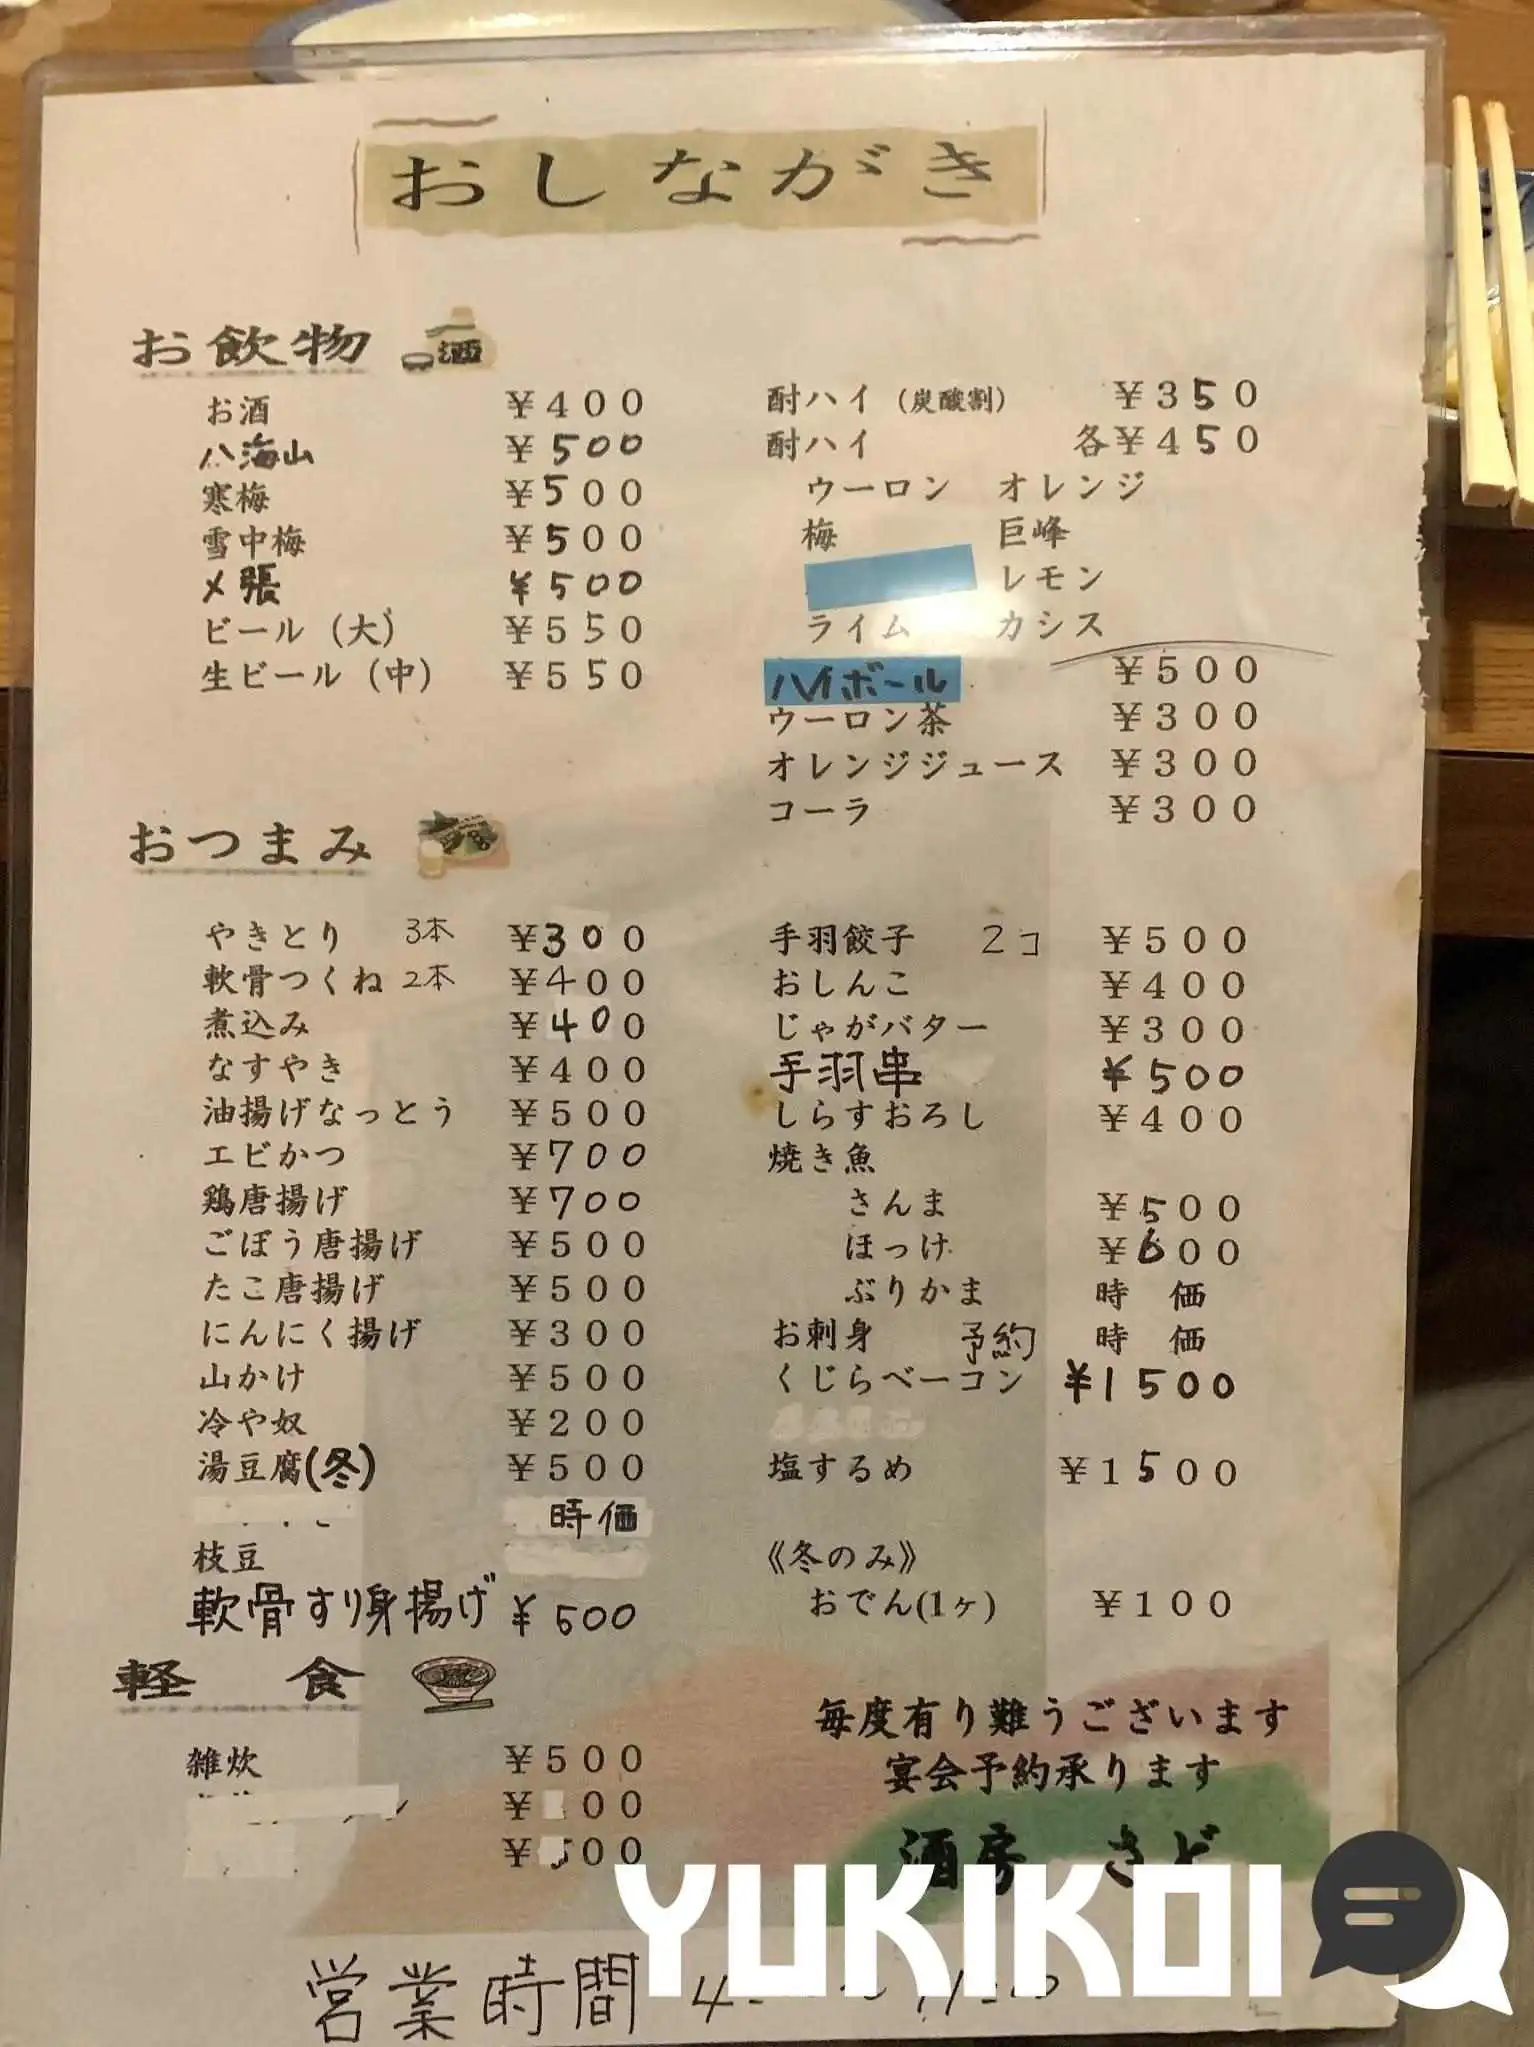 おしながき
お飲物
酒
お酒 ¥400
八海山 ¥500
寒梅 ¥500
雪中梅 ¥500
〆張 ¥500
ビール（大） ¥550
生ビール（中） ¥550
酎ハイ（炭酸割） ¥350
酎ハイ 各¥450
ウーロン オレンジ
梅 巨峰
レモン
ライム カシス
ハイボール ¥500
ウーロン茶 ¥300
オレンジジュース ¥300
コーラ ¥300
おつまみ
やきとり 3本 ¥300
軟骨つくね 2本 ¥400
煮込み ¥400
なすやき ¥400
油揚げなっとう ¥500
エビかつ ¥700
鶏唐揚げ ¥700
ごぼう唐揚げ ¥500
たこ唐揚げ ¥500
にんにく揚げ ¥300
山かけ ¥500
冷や奴 ¥200
湯豆腐(冬) ¥500
時価
枝豆
軟骨すり身揚げ ¥500
手羽餃子 2コ ¥500
おしんこ ¥400
じゃがバター ¥300
手羽串 ¥500
しらすおろし ¥400
焼き魚
さんま ¥500
ほっけ ¥600
ぶりかま 時価
お刺身 予約 時価
くじらベーコン ¥1500
塩するめ ¥1500
《冬のみ》
おでん(1ヶ) ¥100
軽食
雑炊 ¥500
¥ 00
¥ 00
毎度有り難うございます
宴会予約承ります
酒房 さど
営業時間
YUKIKOI